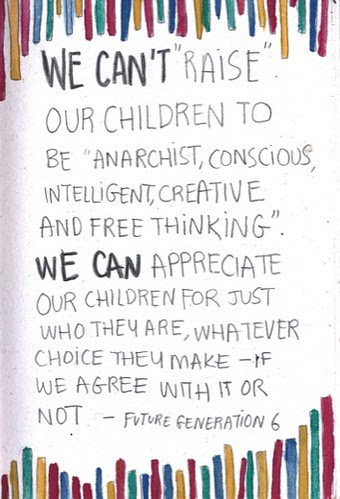 WE CAN'T "RAISE"
OUR CHILDREN TO
BE "ANARCHIST, CONSCIOUS,
INTELLIGENT, CREATIVE
AND FREE THINKING".
WE CAN APPRECIATE
OUR CHILDREN FOR JUST
WHO THEY ARE, WHATEVER
CHOICE THEY MAKE - IF
WE AGREE WITH IT OR
NOT. - FUTURE GENERATION 6